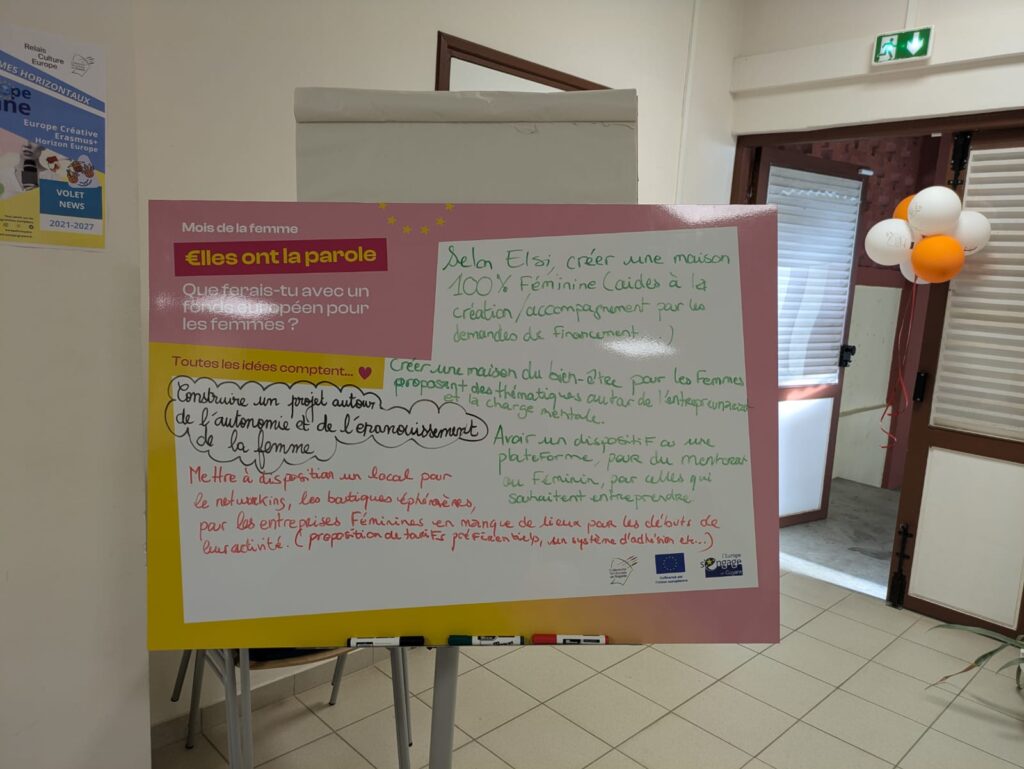 Relais
Culture
Europe
MES HORIZONTAUX
Europe Créative
Erasmus+
Horizon Europe
VOLET
NEWS
2021-2027
Mois de la femme
€lles ont la parole
Que ferais-tu avec un
fonds européen pour
les femmes ?
Toutes les idées comptent...
Construire un projet autour
de l'autonomie et de l'épanouissement
de la femme
Selon Elsi, créer une maison
100% Féminine (aides à la
création/accompagnement par les
demandes de financement...)
Créer une maison du bien-être pour les femmes
proposant des thématiques autour de l'entrepreunariat
et la charge mentale.
Avoir un dispositif ou une
plateforme, pour du mentorat
au Féminin, par celles qui
souhaitent entreprendre.
Mettre à disposition un local pour
le networking, les boutiques éphémères,
par les entreprises Féminines en manque de lieux par les débuts de
leur activité. (proposition de tarifs préférentiels, un système d'adhésion etc...)
Cofinancé par
l'Union européenne
l'Europe
s'engage
en Guyane